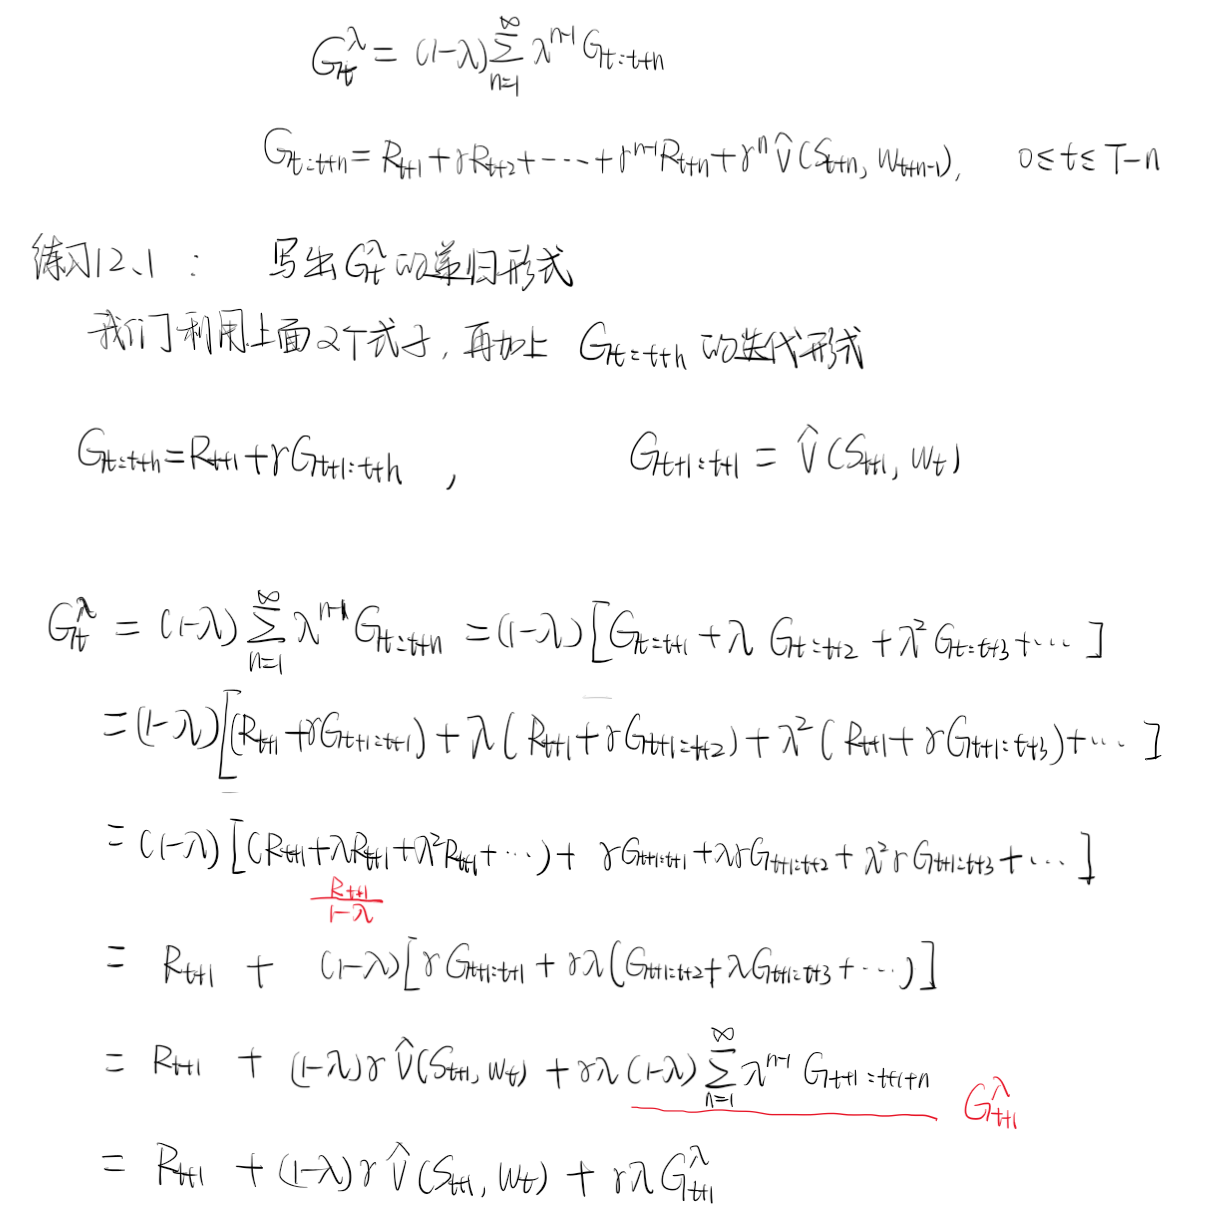 G_t^λ = (1-λ) ∑_{n=1}^{∞} λ^{n-1} G_{t:t+n}
G_{t:t+n} = R_{t+1} + γR_{t+2} + ---- + γ^{n-1}R_{t+n} + γ^n V̂(S_{t+n}, W_{t+n-1}), 0≤t≤T-n
练习12、1 : 写出G_t^λ的递归形式
我们利用上面2个式子,再加上 G_{t:t+h} 的迭代形式
G_{t:t+h} = R_{t+1} + γG_{t+1:t+h} , G_{t+1:t+1} = V̂(S_{t+1}, W_t)
G_t^λ = (1-λ) ∑_{n=1}^{∞} λ^{n-1} G_{t:t+n} = (1-λ)[G_{t:t+1} + λ G_{t:t+2} + λ^2 G_{t:t+3} + ···]
= (1-λ)[(R_{t+1} + γG_{t+1:t+1}) + λ(R_{t+1} + γG_{t+1:t+2}) + λ^2(R_{t+1} + γG_{t+1:t+3}) + ···]
= (1-λ)[(R_{t+1} + λR_{t+1} + λ^2R_{t+1} + ···) + γG_{t+1:t+1} + λγG_{t+1:t+2} + λ^2γG_{t+1:t+3} + ···]
R_{t+1}
1-λ
= R_{t+1} + (1-λ)[γG_{t+1:t+1} + γλ(G_{t+1:t+2} + λG_{t+1:t+3} + ···)]
= R_{t+1} + (1-λ)γV̂(S_{t+1}, W_t) + γλ(1-λ) ∑_{n=1}^{∞} λ^{n-1} G_{t+1:t+1+n} G_{t+1}^λ
= R_{t+1} + (1-λ)γV̂(S_{t+1}, W_t) + γλG_{t+1}^λ